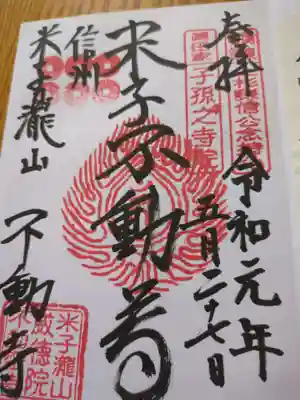 奉拝
令和元年
五月二十七日
子孫之寺
米子不動尊
信州
米子瀧山
不動寺
米子瀧山
威徳院